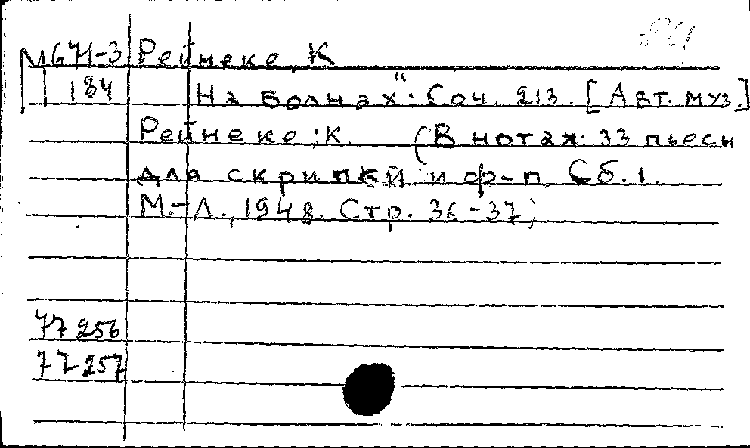 М671-3 Рейнеке, К
184 На волнах": Соч. 213. [Авт. муз.]
Рейнеке, К. (В нотах: 33 пьесы
для скрипкй и ф-п. Сб. 1.
М.-Л., 1948. Стр. 36-37;
77256
77257